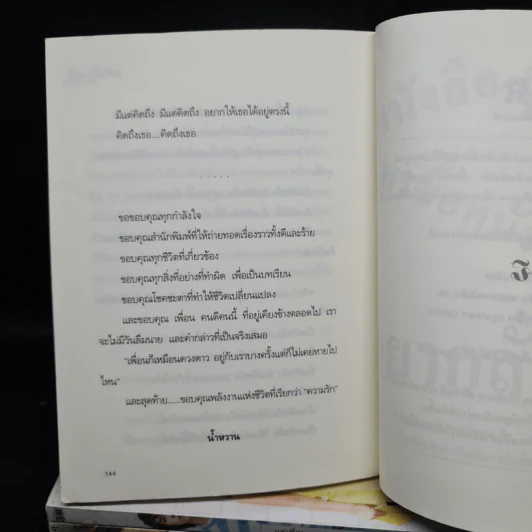 มีแต่คิดถึง มีแต่คิดถึง อยากให้เธอได้อยู่ตรงนี้
คิดถึงเธอ....คิดถึงเธอ
.....
ขอขอบคุณทุกกำลังใจ
ขอบคุณสำนักพิมพ์ที่ให้ถ่ายทอดเรื่องราวทั้งดีและร้าย
ขอบคุณทุกชีวิตที่เกี่ยวข้อง
ขอบคุณทุกสิ่งที่อย่างที่ทำผิด เพื่อเป็นบทเรียน
ขอบคุณโชคชะตาที่ทำให้ชีวิตเปลี่ยนแปลง
และขอบคุณ เพื่อน คนดีคนนี้ ที่อยู่เคียงข้างตลอดไป เรา
จะไม่มีวันลืมนาย และคำกล่าวที่เป็นจริงเสมอ
"เพื่อนก็เหมือนดวงดาว อยู่กับเราบางครั้งแต่ก็ไม่เคยหายไป
ไหน"
และสุดท้าย.....ขอบคุณพลังงานแห่งชีวิตที่เรียกว่า "ความรัก"
น้ำหวาน
144